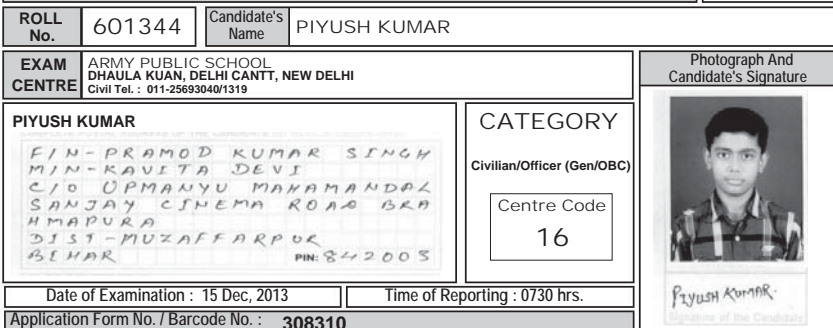 ROLL No. 601344 Candidate's Name PIYUSH KUMAR
EXAM CENTRE ARMY PUBLIC SCHOOL
DHAULA KUAN, DELHI CANTT, NEW DELHI
Civil Tel. : 011-25693040/1319
Photograph And
Candidate's Signature
PIYUSH KUMAR
F/N-PRAMOD KUMAR SINGH
M/N-KAVITA DEVI
C/O UPMANYU MAHAMANDAL
SANJAY CINEMA ROAD BRA
HMAPURA
DIST-MUZAFFARPUR
BIHAR PIN: 842003
CATEGORY
Civilian/Officer (Gen/OBC)
Centre Code
16
PIYUSH KUMAR.
Signature of the Candidate
Date of Examination : 15 Dec, 2013 Time of Reporting : 0730 hrs.
Application Form No. / Barcode No. : 308310